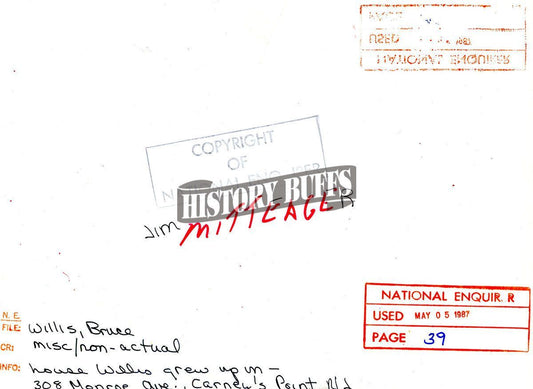 USED 1987
NATIONAL ENQUIRER
COPYRIGHT
OF
NATIONAL ENQUIRER
HISTORY BUFFS
JIM MITTEAGER
NATIONAL ENQUIR. R
USED MAY 05 1987
PAGE 39
N.E.
FILE: Willis, Bruce
CR: misc/non-actual
INFO: house Willis grew up in —
308 Monroe Ave., Carney's Point Rd